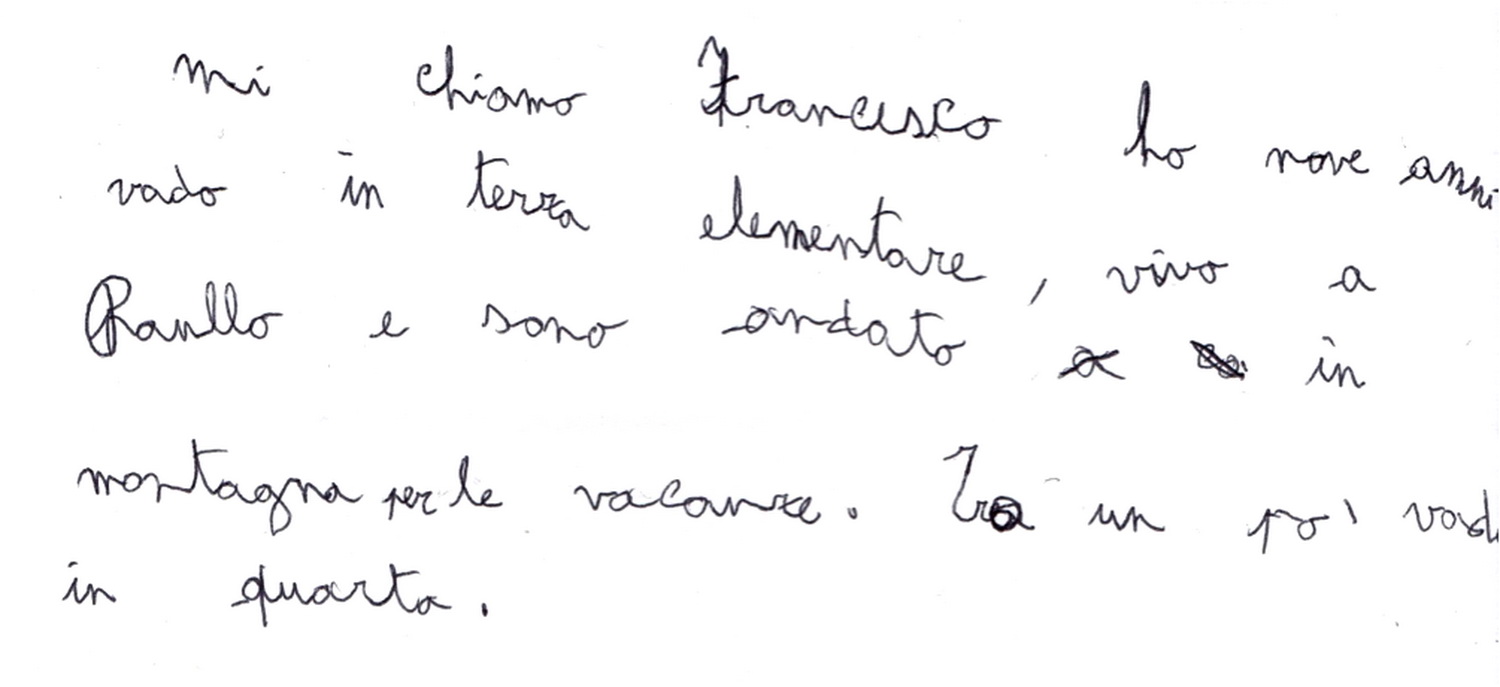 Mi chiamo Francesco ho nove anni
vado in terza elementare, vivo a
e sono andato a in
montagna per le vacanze. Tra un po' vado
in quarta.